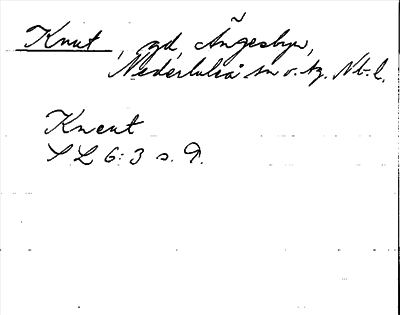 Knut, gd, Ängesbyn,
Nederluleå sn o. tg. Nb. l.
Kneut
S L 6:3 s. 9.